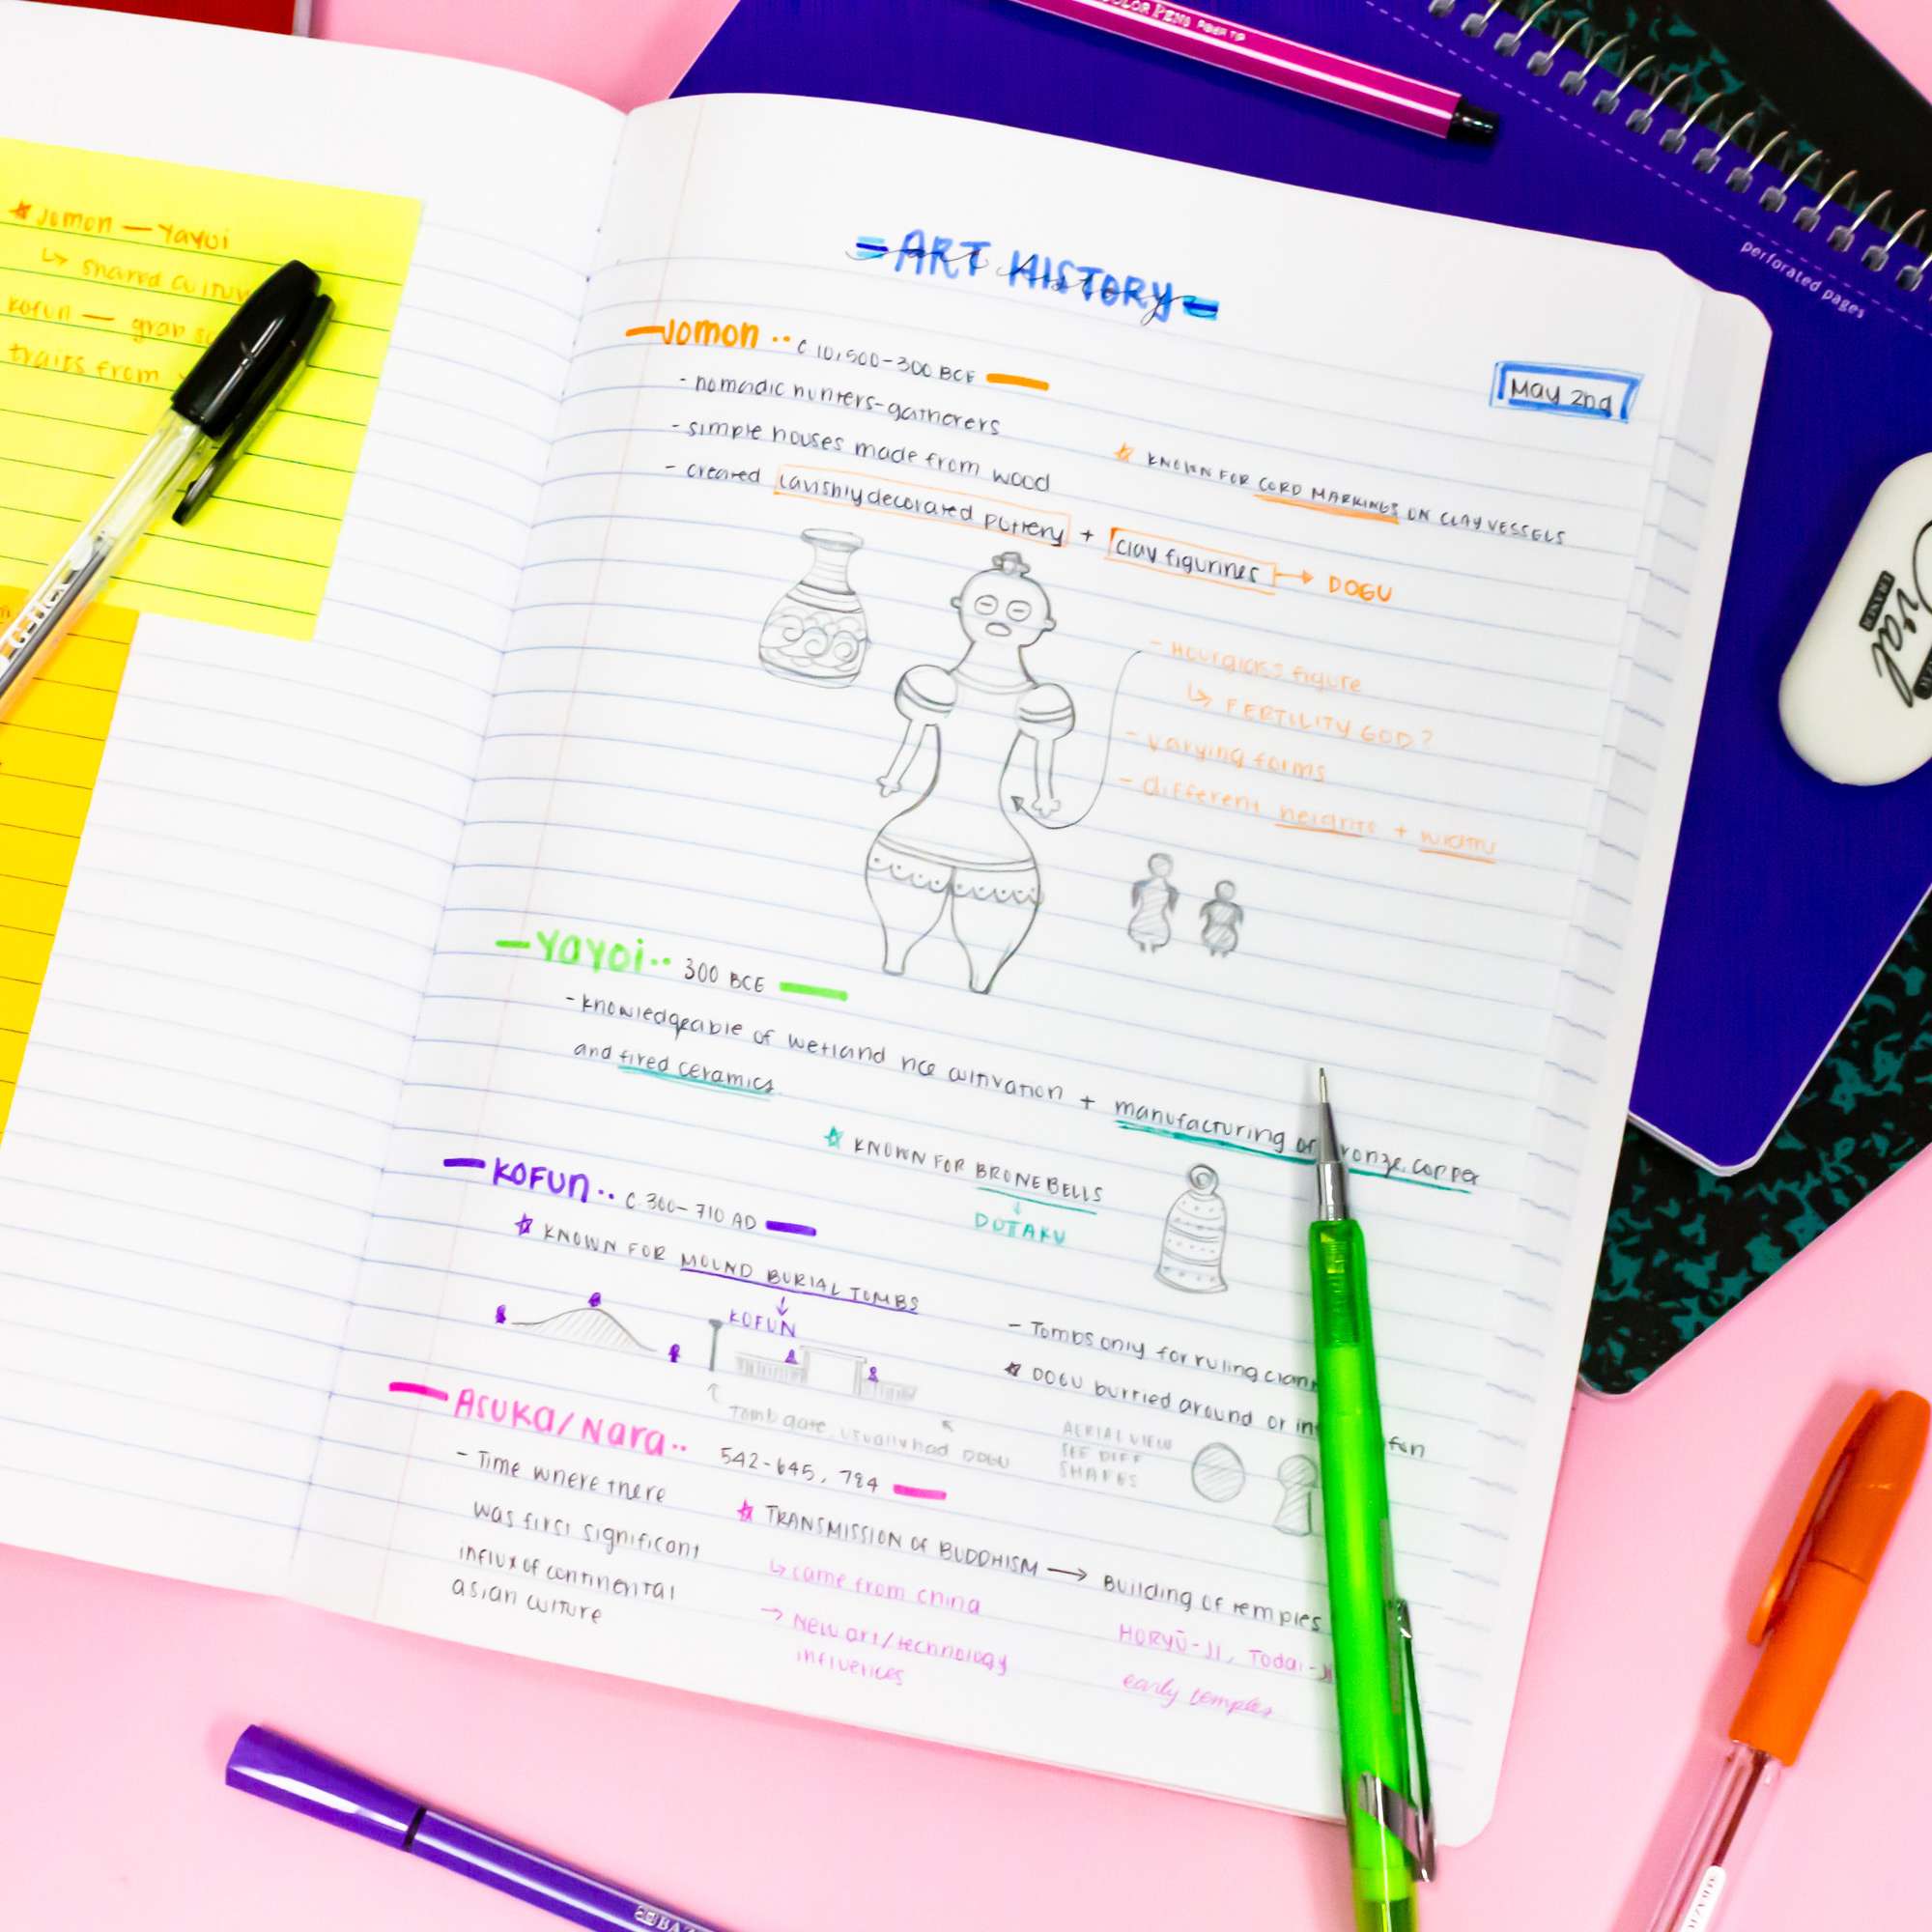 COLOR PENS FIBER TIP
perforated pages
Jomon — Yayoi
↳ shared
Kofun — grab
traits from
Oval
ERASER
= ART HISTORY =
art history
May 2nd
Jomon ·· c 10,500-300 BCE
- nomadic hunters-gatherers
- simple houses made from wood
☆ KNOWN FOR CORD MARKINGS ON CLAY VESSELS
- created lavishly decorated pottery + clay figurines → DOGU
- Hourglass figure
↳ FERTILITY GOD?
- varying forms
- different heights + widths
Yayoi ·· 300 BCE
- knowledgeable of wetland rice cultivation + manufacturing of copper
and fired ceramics
☆ KNOWN FOR BRONE BELLS
↓
DOTAKU
KOFUN ·· c. 300-710 AD
☆ KNOWN FOR MOUND BURIAL TOMBS
↓
KOFUN
Tomb gate, usually had DOGU
- Tombs only for ruling
☆ DOGU burried around or
AERIAL VIEW
SEE DIFF
SHAPES
ASUKA/Nara ·· 542-645, 784
- Time where there
was first significant
influx of continental
asian culture
☆ TRANSMISSION OF BUDDHISM → Building of temples
↳ came from china
→ New art/technology
influences
HORYŪ-JI, Todai-
early temples